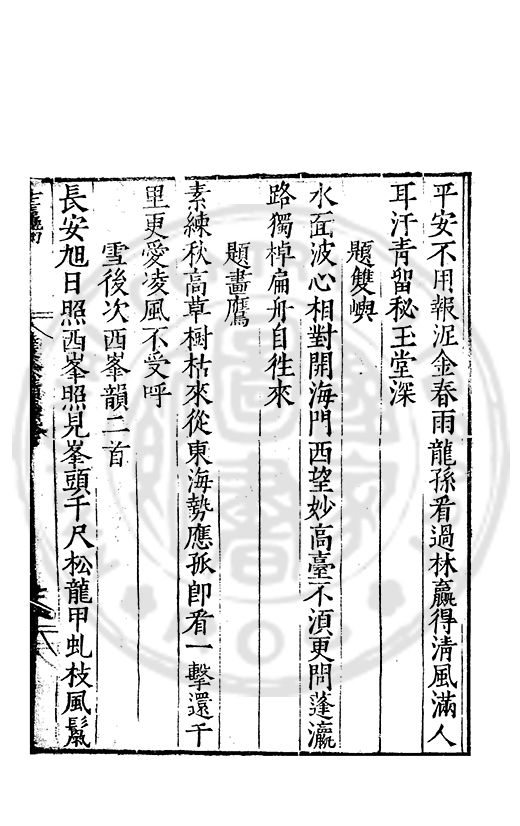 平安不用報泥金春雨龍孫看過林贏得清風滿人
耳汗青留秘玉堂深
題雙嶼
水面波心相對開海門西望妙高臺不須更問蓬瀛
路獨棹扁舟自徃來
題畫鷹
素練秋高草樹枯來從東海勢應孤即看一擊還千
里更愛凌風不受呼
雪後次西峯韻二首
長安旭日照西峯照見峯頭千尺松龍甲虬枝風鬣